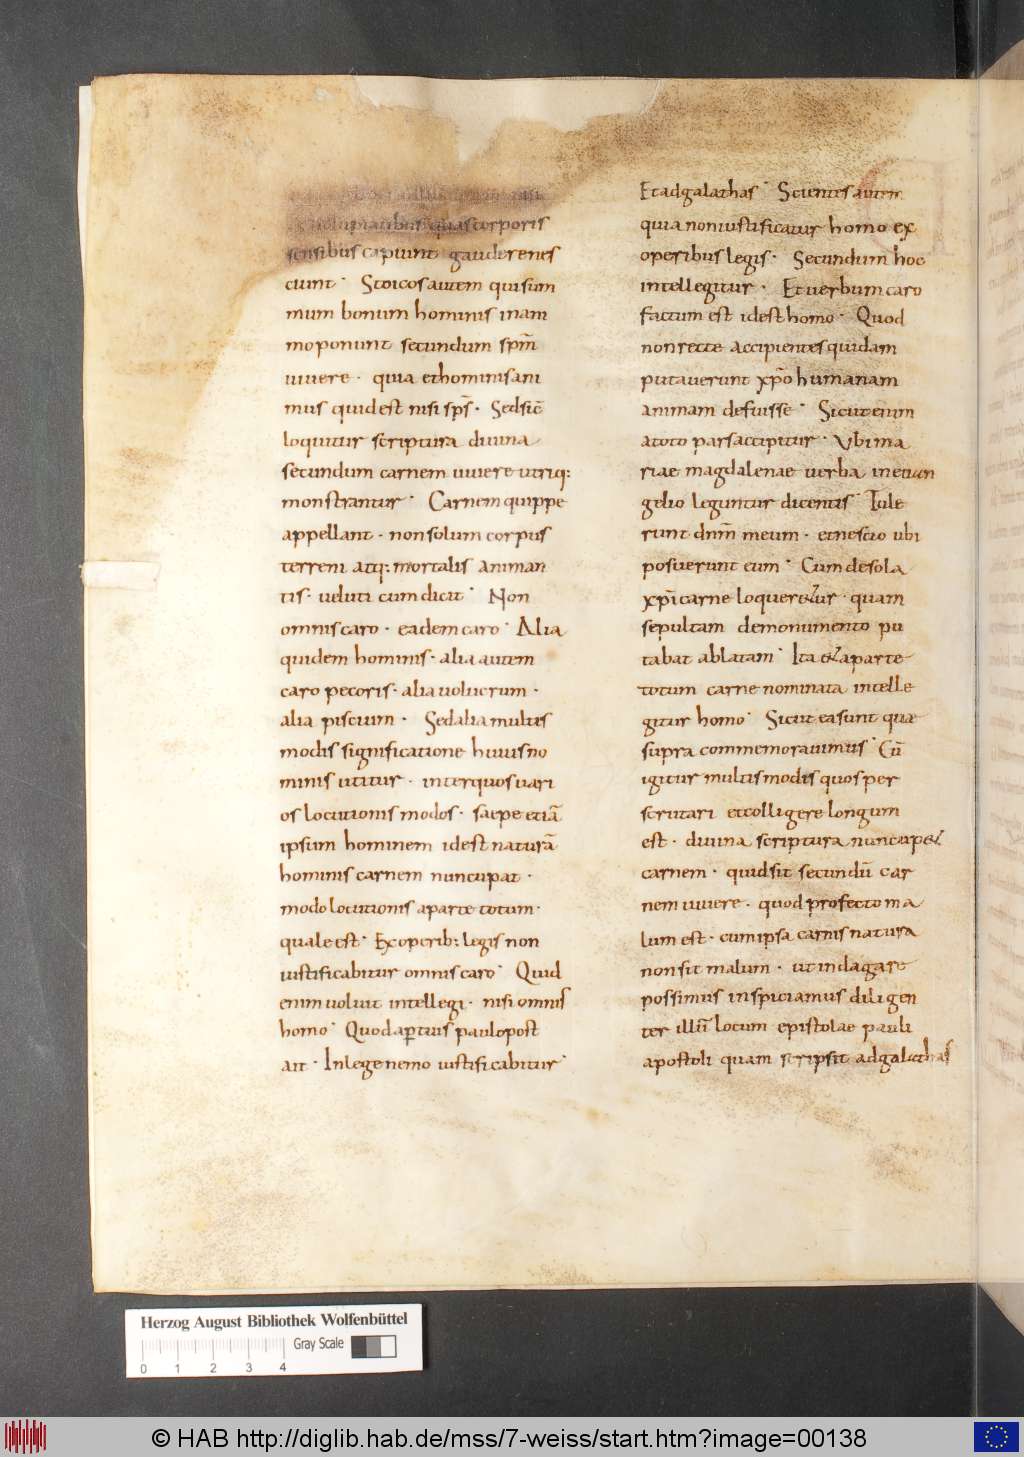 uoluptatibus quas corporis
sensibus capiunt gauderenes
cunt· Stoicos autem qui sum
mum bonum hominis in ani
mo ponunt secundum spm̄
uiuere· quia et hominis ani
mus quid est nisi sps̄· Sed sic̄
loquitur scriptura diuina
secundum carnem uiuere utriq:
monstrantur· Carnem quippe
appellant· non solum corpus
terreni atq: mortalis animan
tis· uduti cum dicit· Non
omnis caro· eadem caro· Alia
quidem hominis· alia autem
caro pecoris· alia uolucrum·
alia piscium· Sed alia multis
modis significatione huius no
minis utitur· inter quos uari
os locutionis modos· saepe etiā
ipsum hominem id est naturā
hominis carnem nuncupat·
modo locutionis a parte totum·
quale est· Ex operib: legis non
iustificabitur omnis caro· Quid
enim uoluit intellegi· nisi omnis
homo· Quod apertius paulo post
ait· In lege nemo iustificabitur·
Et ad galathas· Scientes autem
quia non iustificatur homo ex
operibus legis· Secundum hoc
intellegitur· Et uerbum caro
factum est id est homo· Quod
non recte accipientes quidam
putauerunt xpō humanam
animam defuisse· Sicut enim
a toto pars accipitur· Ubi ma
riae magdalenae uerba in euan
gelio leguntur dicentis· Tule
runt dnm̄ meum· et nescio ubi
posuerunt eum· Cum de sola
xpī carne loqueretur· quam
sepultam de monumento pu
tabat ablatam· Ita et a parte
totum carne nominata intelle
gitur homo· Sicut ea sunt quae
supra commemorauimus· Cū
igitur multis modis quos per
scrutari et colligere longum
est· diuina scriptura nuncupet
carnem· quid sit secundū car
nem uiuere· quod profecto ma
lum est· cum ipsa carnis natura
non sit malum· ut indagare
possimus inspiciamus diligen
ter illū locum epistolae pauli
apostoli quam scripsit ad galathas
Herzog August Bibliothek Wolfenbüttel
Gray Scale
0 1 2 3 4
© HAB http://diglib.hab.de/mss/7-weiss/start.htm?image=00138